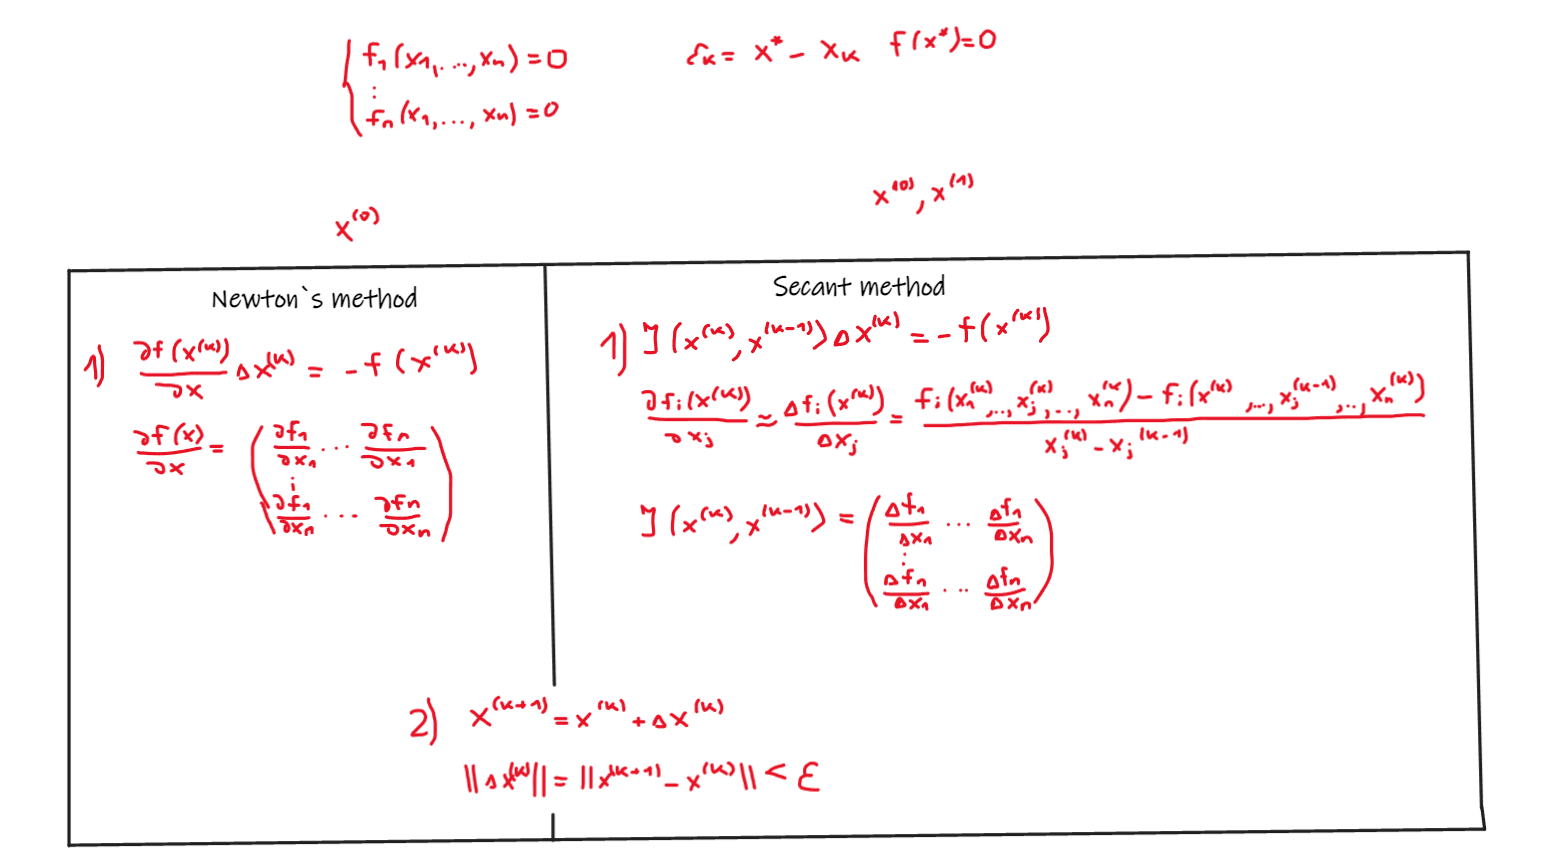 f₁(x₁,...,xₙ)=0
⋮
fₙ(x₁,...,xₙ)=0
εₖ= x* - xₖ f(x*)=0
x⁽⁰⁾
x⁽⁰⁾, x⁽¹⁾
Newton`s method
1) ∂f(x⁽ᵏ⁾)/∂x Δx⁽ᵏ⁾ = -f(x⁽ᵏ⁾)
∂f(x)/∂x = ( ∂f₁/∂x₁ ... ∂fₙ/∂x₁
⋮
∂f₁/∂xₙ ... ∂fₙ/∂xₙ )
Secant method
1) J(x⁽ᵏ⁾, x⁽ᵏ⁻¹⁾)Δx⁽ᵏ⁾ = -f(x⁽ᵏ⁾)
∂fᵢ(x⁽ᵏ⁾)/∂xⱼ ≈ Δfᵢ(x⁽ᵏ⁾)/Δxⱼ = fᵢ(x₁⁽ᵏ⁾,..,xⱼ⁽ᵏ⁾,..,xₙ⁽ᵏ⁾) - fᵢ(x⁽ᵏ⁾,..,xⱼ⁽ᵏ⁻¹⁾,..,xₙ⁽ᵏ⁾) / xⱼ⁽ᵏ⁾ - xⱼ⁽ᵏ⁻¹⁾
J(x⁽ᵏ⁾, x⁽ᵏ⁻¹⁾) = ( Δf₁/Δx₁ ... Δf₁/Δxₙ
⋮
Δfₙ/Δx₁ ... Δfₙ/Δxₙ )
2) x⁽ᵏ⁺¹⁾ = x⁽ᵏ⁾ + Δx⁽ᵏ⁾
||Δx⁽ᵏ⁾|| = ||x⁽ᵏ⁺¹⁾ - x⁽ᵏ⁾|| < ε